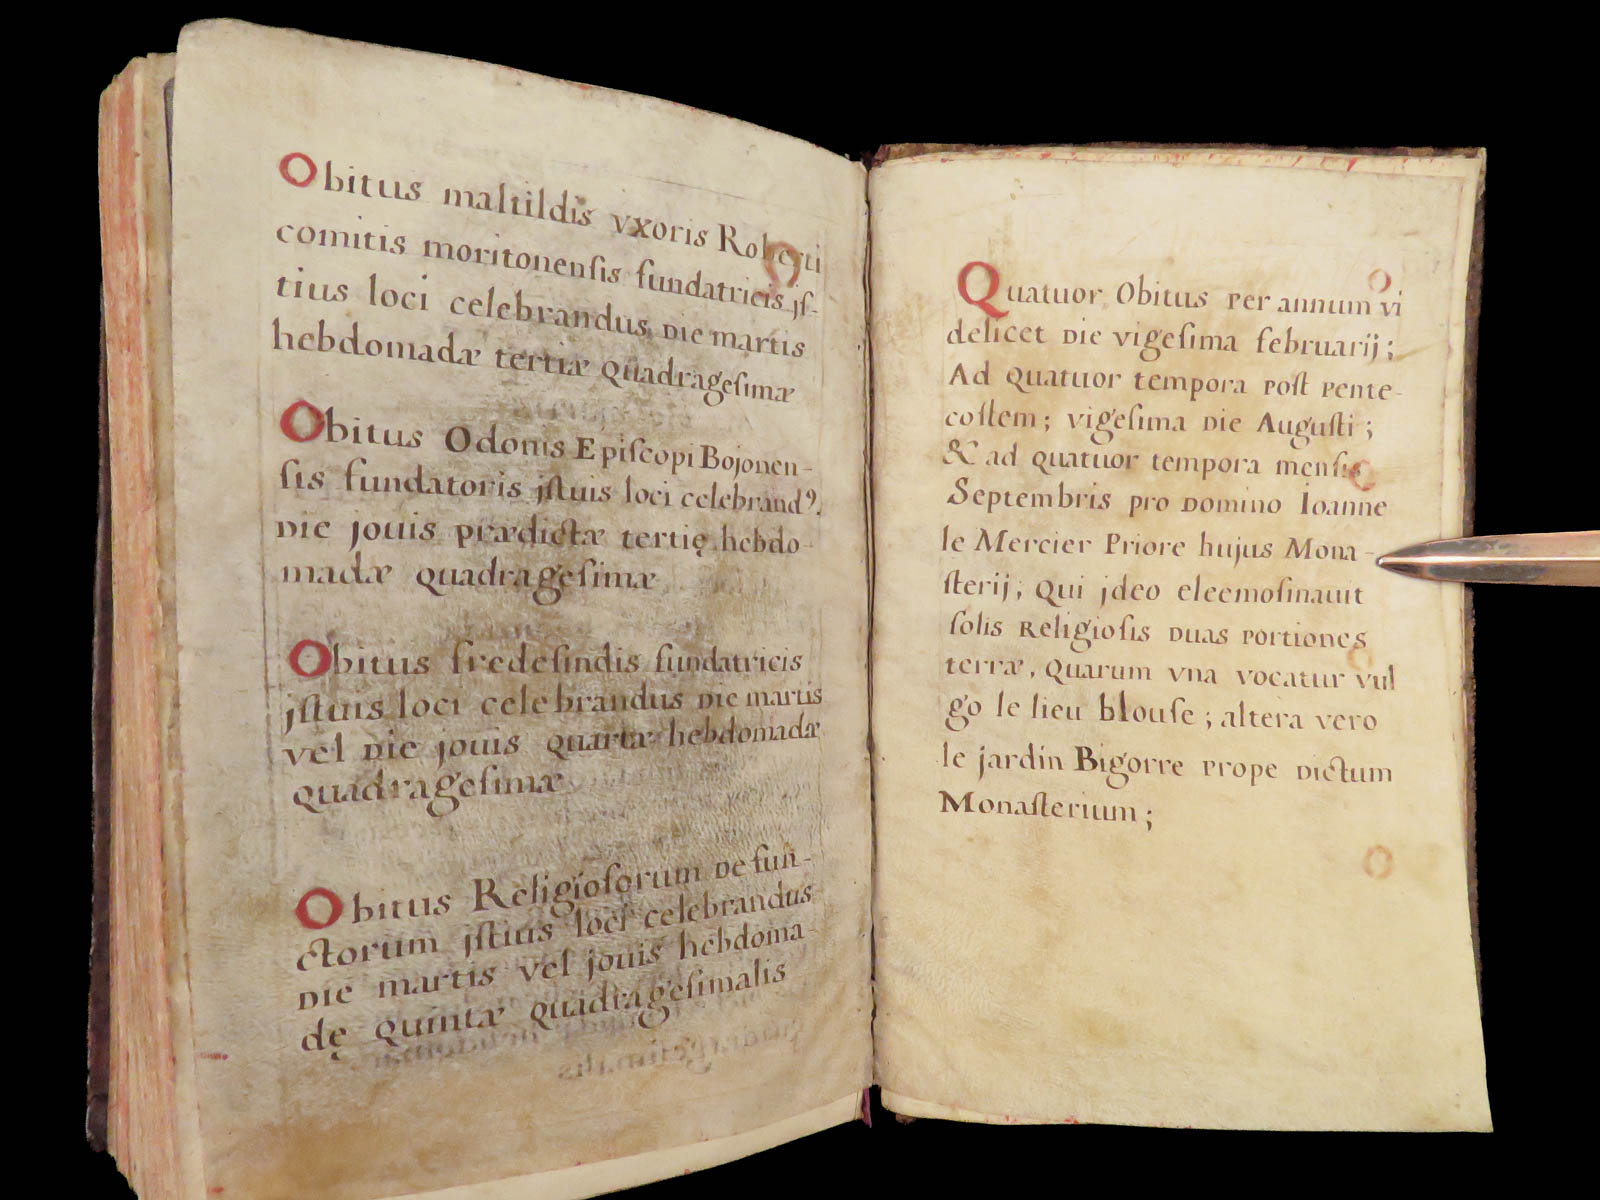 Obitus maltildis vxoris Roberti
comitis moritonensis fundatricis js-
tius loci celebrandus die martis
hebdomadæ tertiæ quadragesimæ
Obitus Odonis Episcopi Bojonen-
sis fundatoris jstius loci celebrandꝰ.
die jouis prædictæ tertię hebdo-
madæ quadragesimæ
Obitus fredesindis fundatricis
jstius loci celebrandus die martis
vel die jouis quartæ hebdomadæ
quadragesimæ
Obitus Religiosorum defun-
ctorum jstius loci celebrandus
die martis vel jouis hebdoma-
dę quintæ quadragesimalis
Quatuor Obitus per annum vi
delicet die vigesima februarij;
Ad quatuor tempora post pente-
costem; vigesima die Augusti;
& ad quatuor tempora mensis
Septembris pro domino Ioanne
le Mercier Priore hujus Mona-
sterij; qui jdeo eleemosinauit
solis religiosis duas portiones
terræ, quarum vna vocatur vul
go le lieu blouse; altera vero
le jardin Bigorre prope dictum
Monasterium;